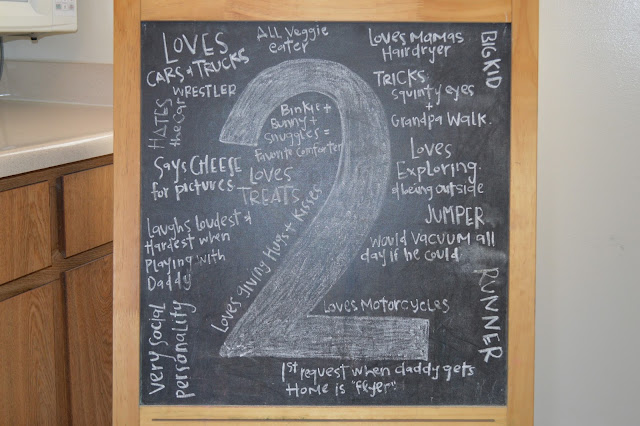 LOVES
CARS & TRUCKS
WRESTLER
HATES
the car
SAYS CHEESE
for pictures
Laughs loudest &
Hardest when
Playing with
Daddy
very social
personality
ALL Veggie
eater
2
Binkie +
Bunny +
Snuggles =
Favorite comforter
LOVES
TREATS
Loves giving Hugs + Kisses
Loves Motorcycles
1st request when daddy gets
Home is "
Loves Mamas
Hairdryer
BIG KID
TRICKS:
squinty eyes
+
Grandpa Walk.
Loves
Exploring
& being outside
JUMPER
would vacuum all
day if he could
RUNNER